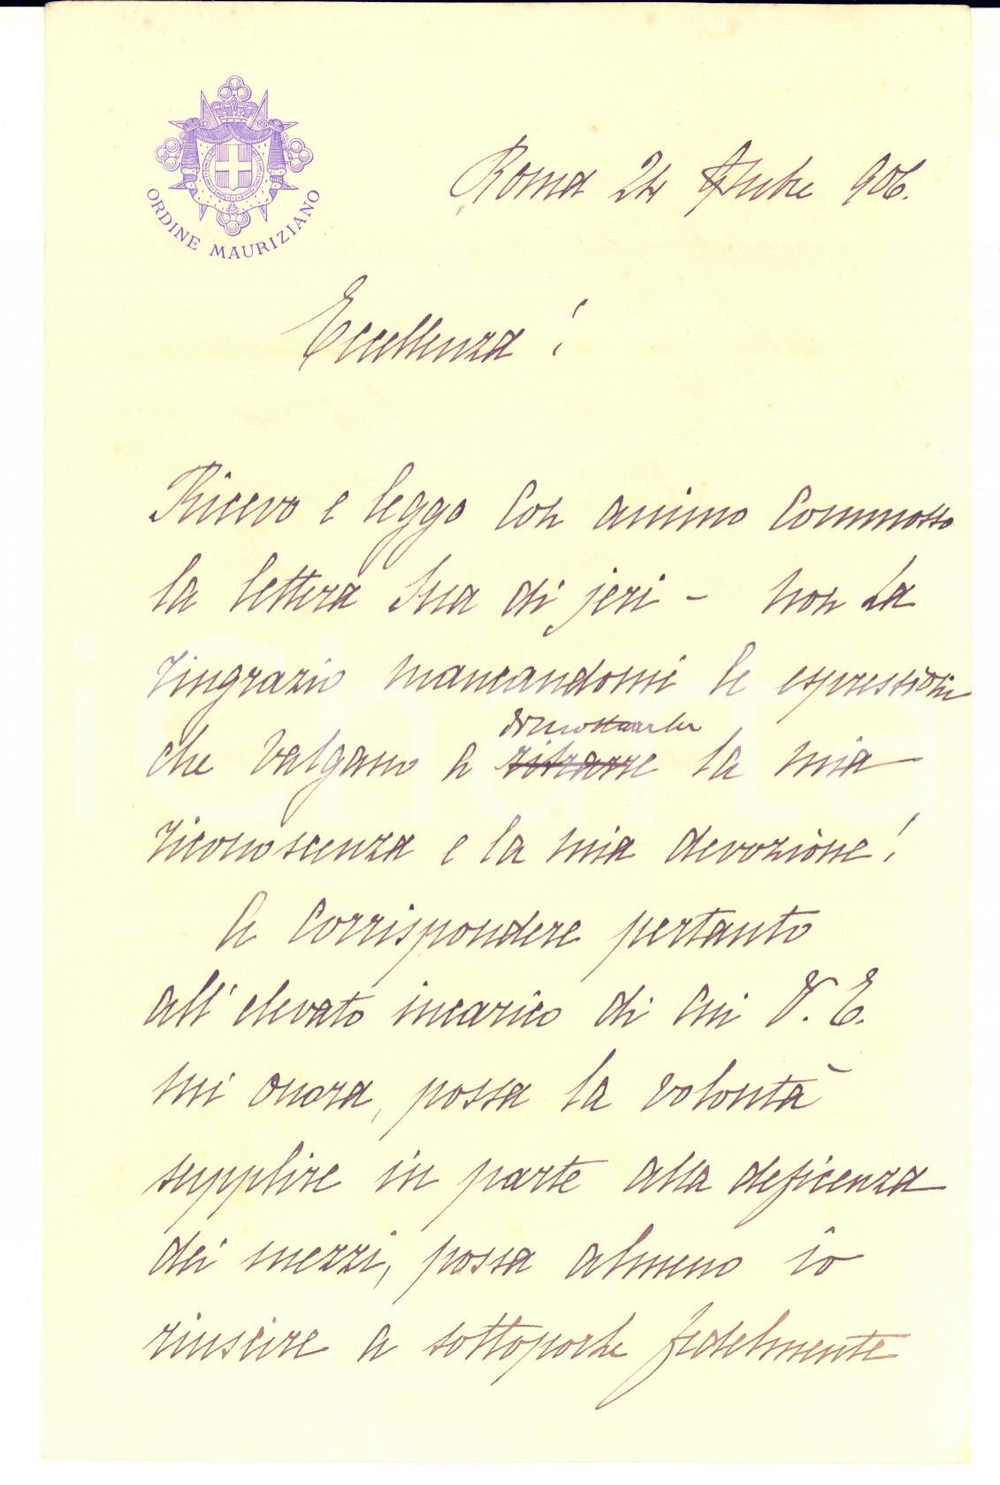 ORDINE MAURIZIANO
Roma 24 906.
Eccellenza!
Ricevo e leggo con animo commosso
la lettera Sua di jeri - non La
ringrazio mancandomi le espressioni
dimostrarle
che valgano a ritrarre la mia
riconoscenza e la mia devozione!
A corrispondere pertanto
all' elevato incarico di cui V. E.
mi onora, possa la volontà
supplire in parte alla deficenza
dei mezzi, possa almeno io
riuscire a sottoporle fedelmente